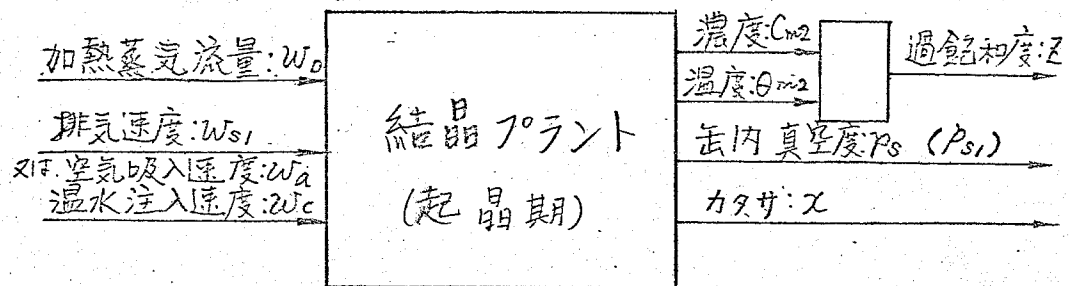 加熱蒸気流量:W₀
排気速度:Ws1
又は.空気吸入速度:Wa
温水注入速度:Wc
結晶プラント
(起晶期)
濃度:Cm2
温度:θm2
過飽和度:Z
缶内真空度:Ps (Ps1)
カタサ:x